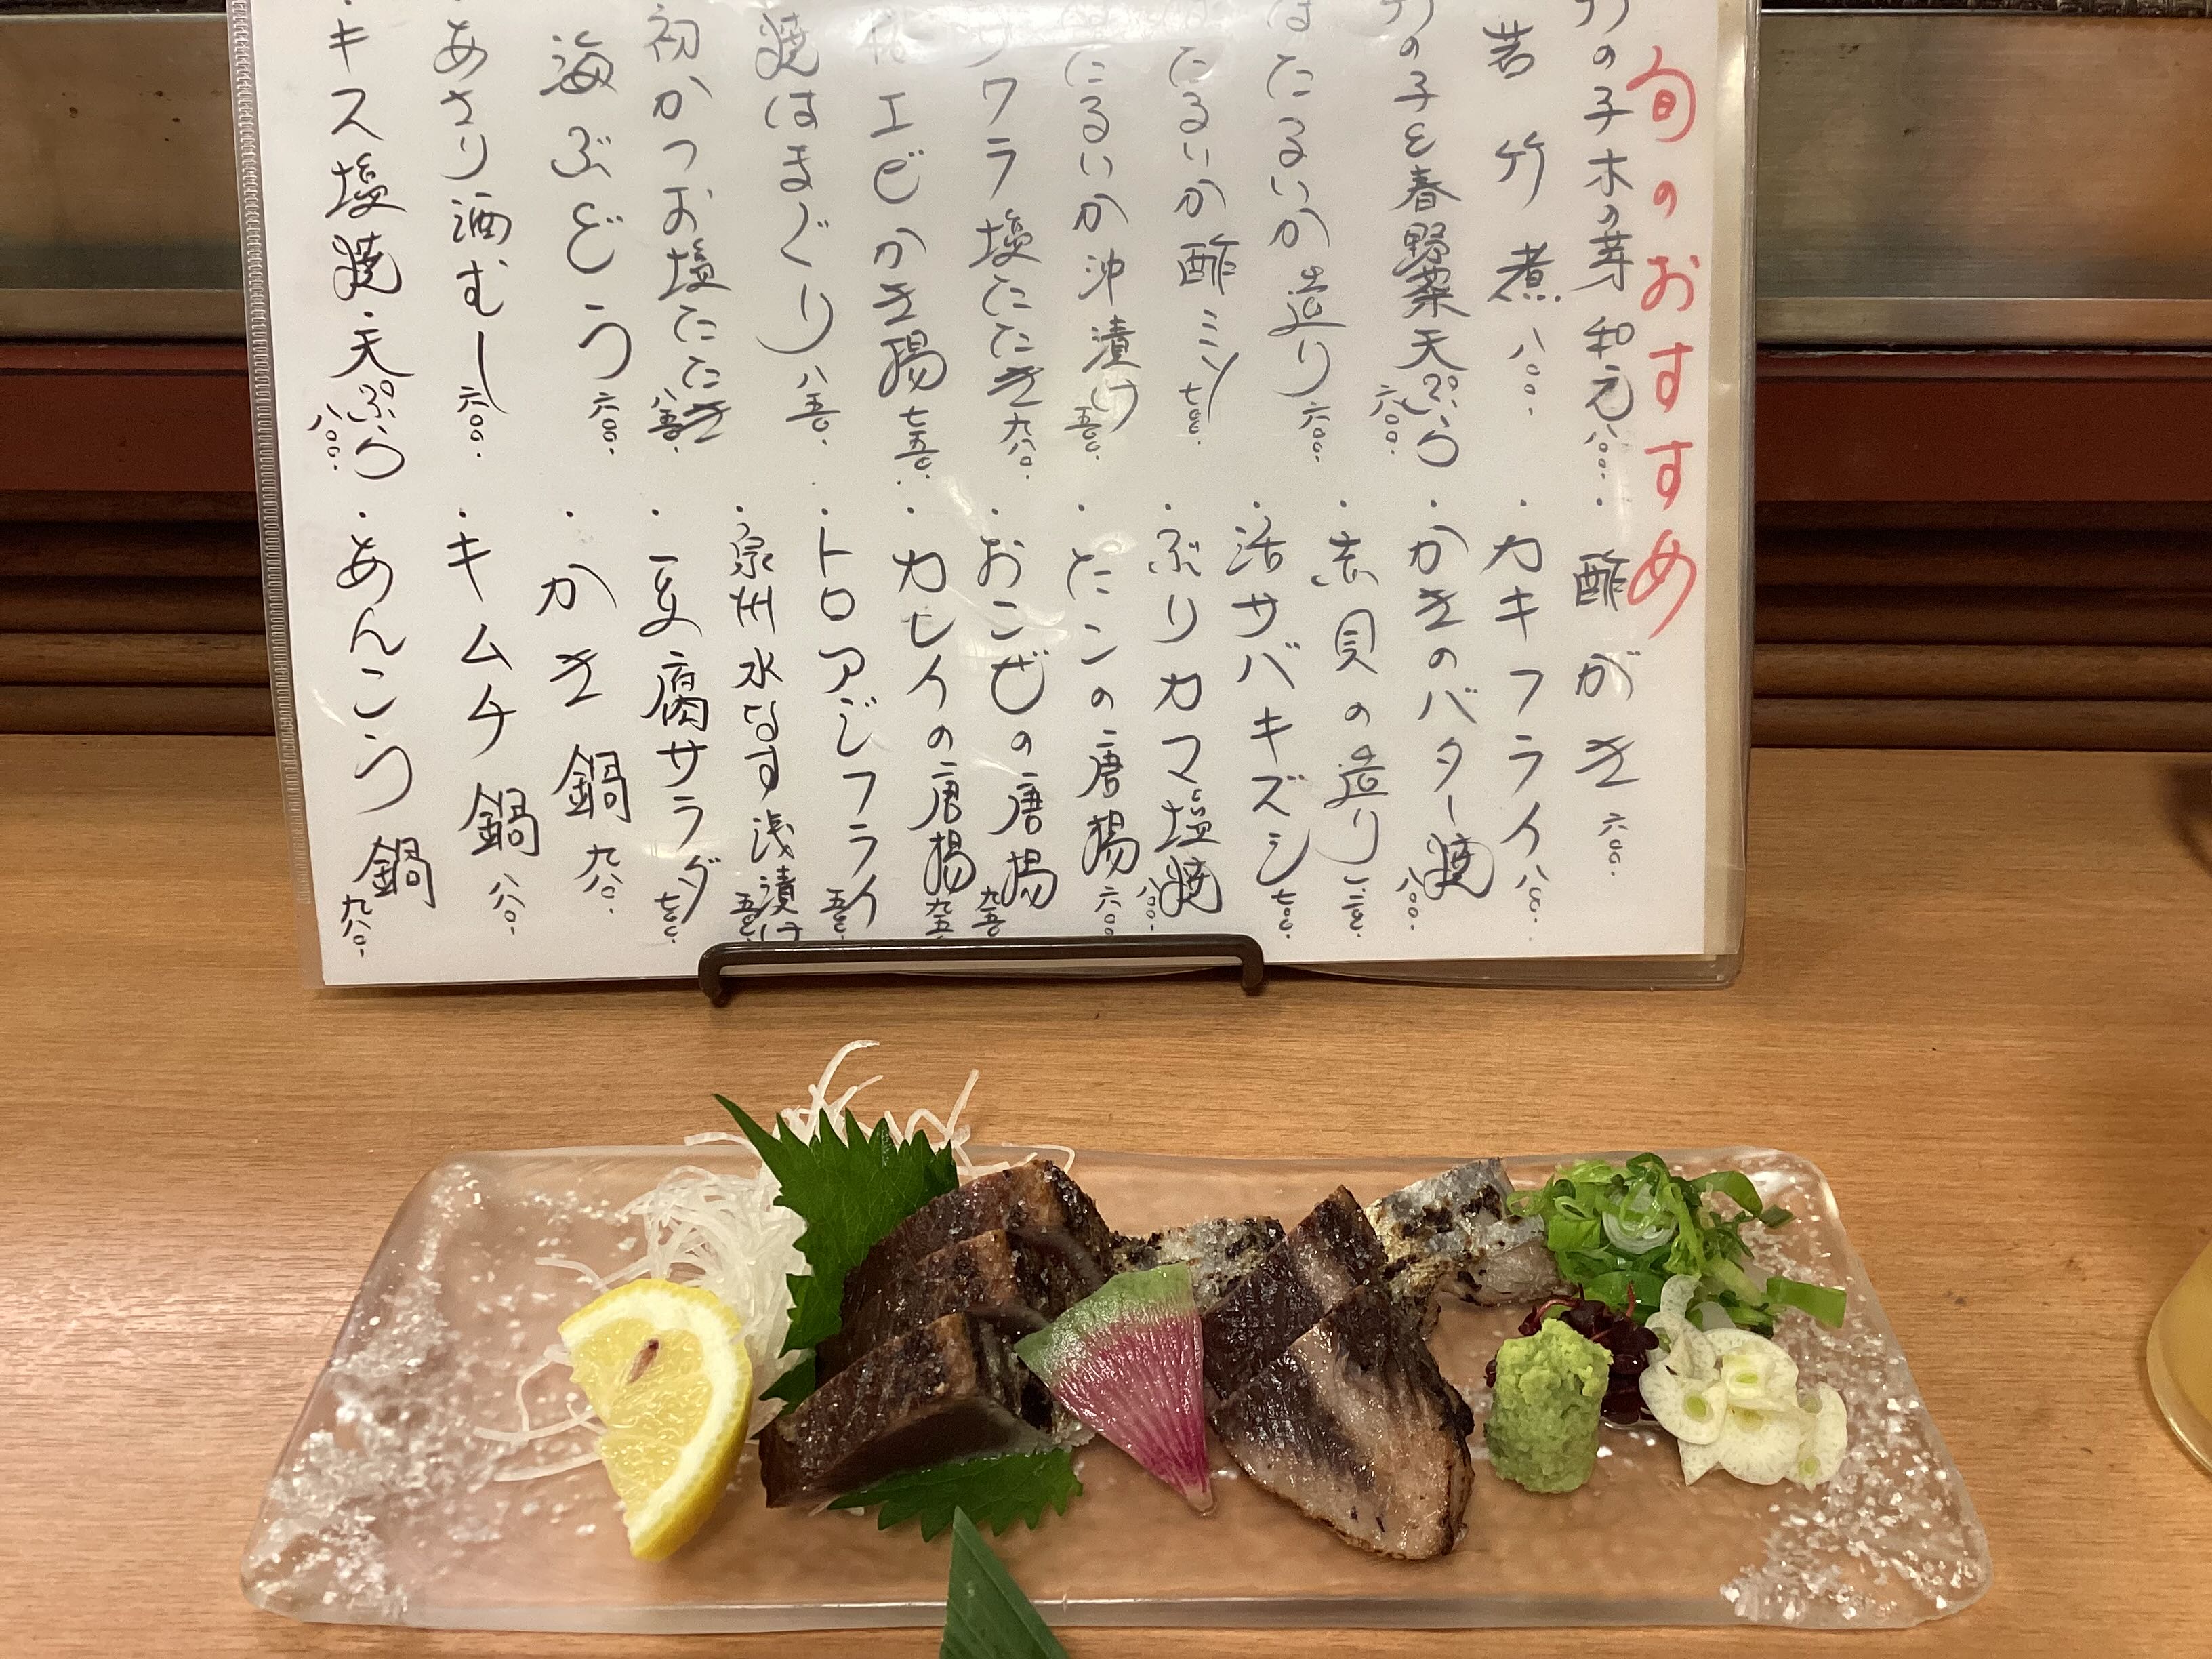 旬のおすすめ
の子木の芽和え 八〇〇.
若竹煮 八〇〇.
の子と春野菜天ぷら 六〇〇.
ほたるいか造り 六〇〇.
たるいか酢ミソ 七〇〇.
たるいか沖漬け 五〇〇.
サワラ塩たたき 九八〇.
エビかき揚 七五〇.
焼はまぐり 八五〇.
初かつお塩たたき 八五〇.
海ぶどう 六〇〇.
・あさり酒むし 六〇〇.
・キス塩焼・天ぷら 八〇〇.
・酢がき 六〇〇.
・カキフライ 八〇〇.
・かきのバター焼 八〇〇.
・赤貝の造り
・活サバキズシ 七〇〇.
・ぶりカマ塩焼 八〇〇.
・たこの唐揚 六〇〇.
・おこぜの唐揚 九五〇
・カレイの唐揚 九五〇.
・トロアジフライ 五〇〇.
・泉州水なす浅漬け 五〇〇.
・豆腐サラダ 七〇〇.
・かき鍋 九八〇.
・キムチ鍋 八八〇.
・あんこう鍋 九八〇.